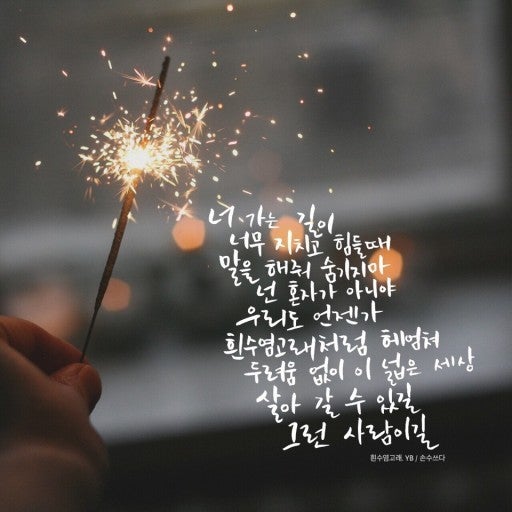 너 가는 길이
너무 지치고 힘들때
말을 해줘 숨기지마
넌 혼자가 아니야
우리도 언젠가
흰수염고래처럼 헤엄쳐
두려움 없이 이 넓은 세상
살아 갈 수 있길
그런 사람이길
흰수염고래. YB / 손수쓰다